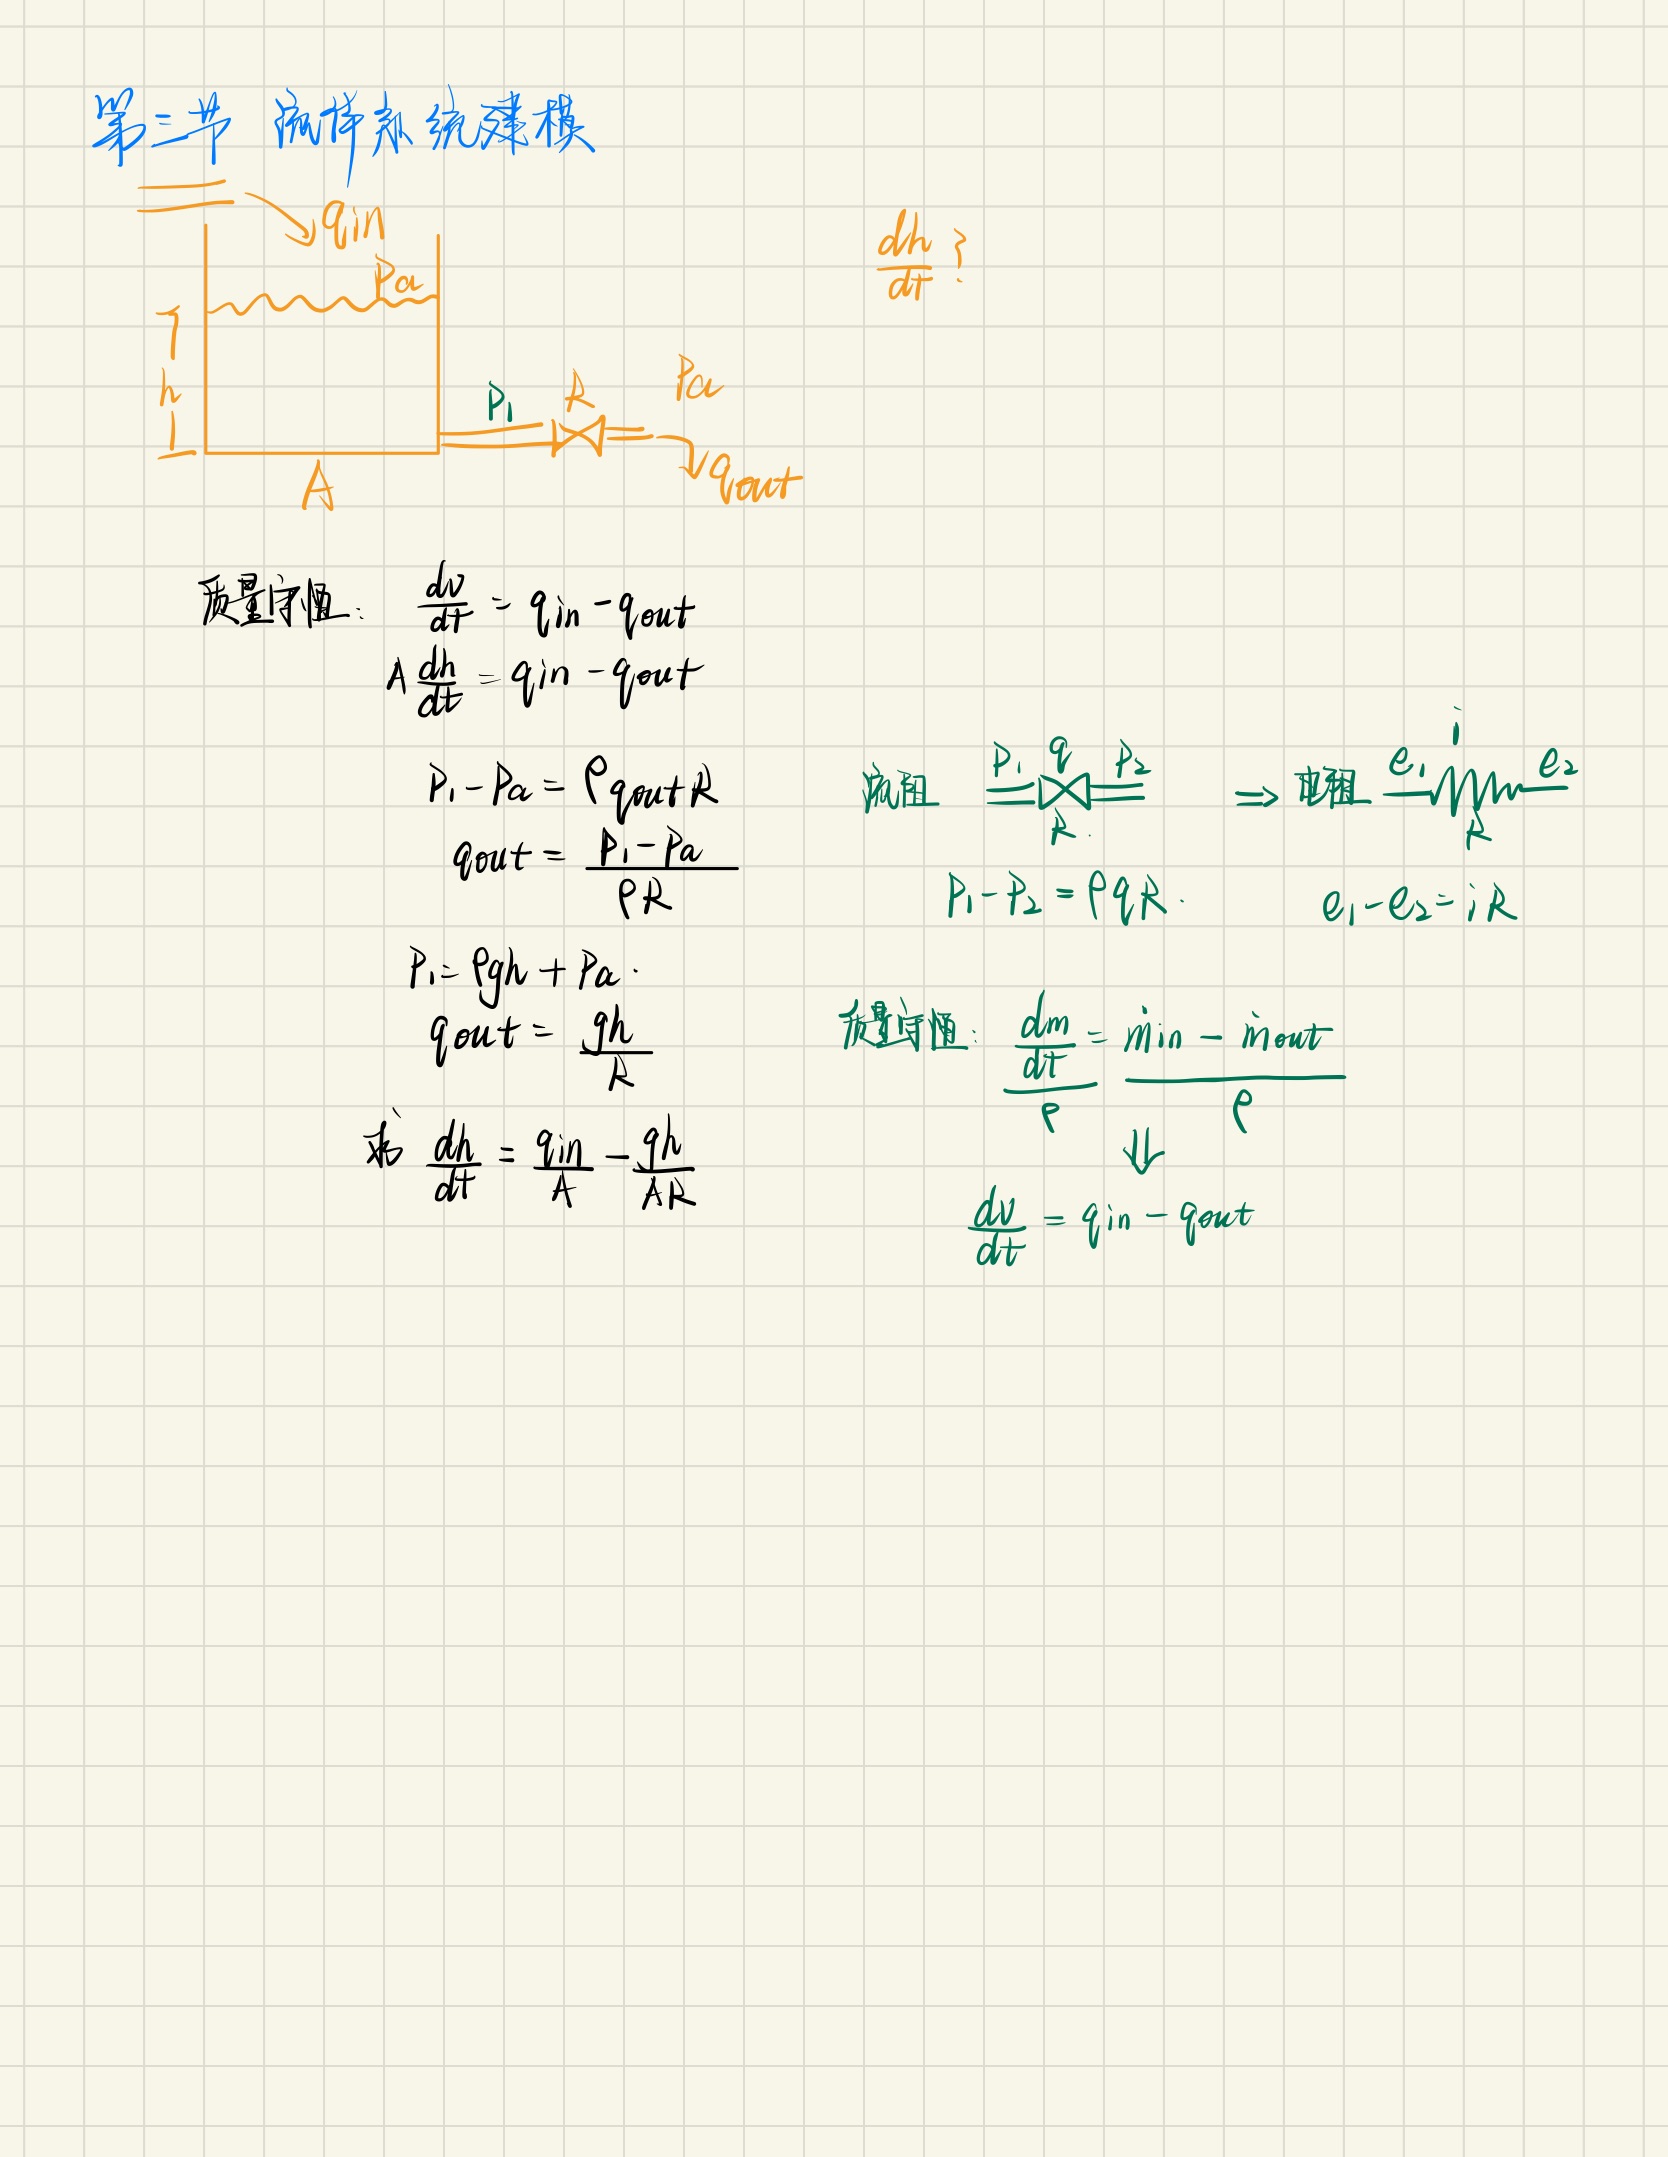 第三节 流体系统建模
qin
Pa
dh/dt ?
h
P₁ R Pa
qout
A
质量守恒: dv/dt = qin - qout
A dh/dt = qin - qout
P₁ - Pa = ρ qout R
qout = (P₁ - Pa)/(ρR)
P₁ = ρgh + Pa.
qout = gh/R
求 dh/dt = qin/A - gh/(AR)
流阻 P₁ q P₂ R. ⇒ 电阻 e₁ i e₂ R
P₁ - P₂ = ρqR. e₁ - e₂ = iR
质量守恒: (dm/dt)/ρ = (ṁin - ṁout)/ρ
⇓
dv/dt = qin - qout